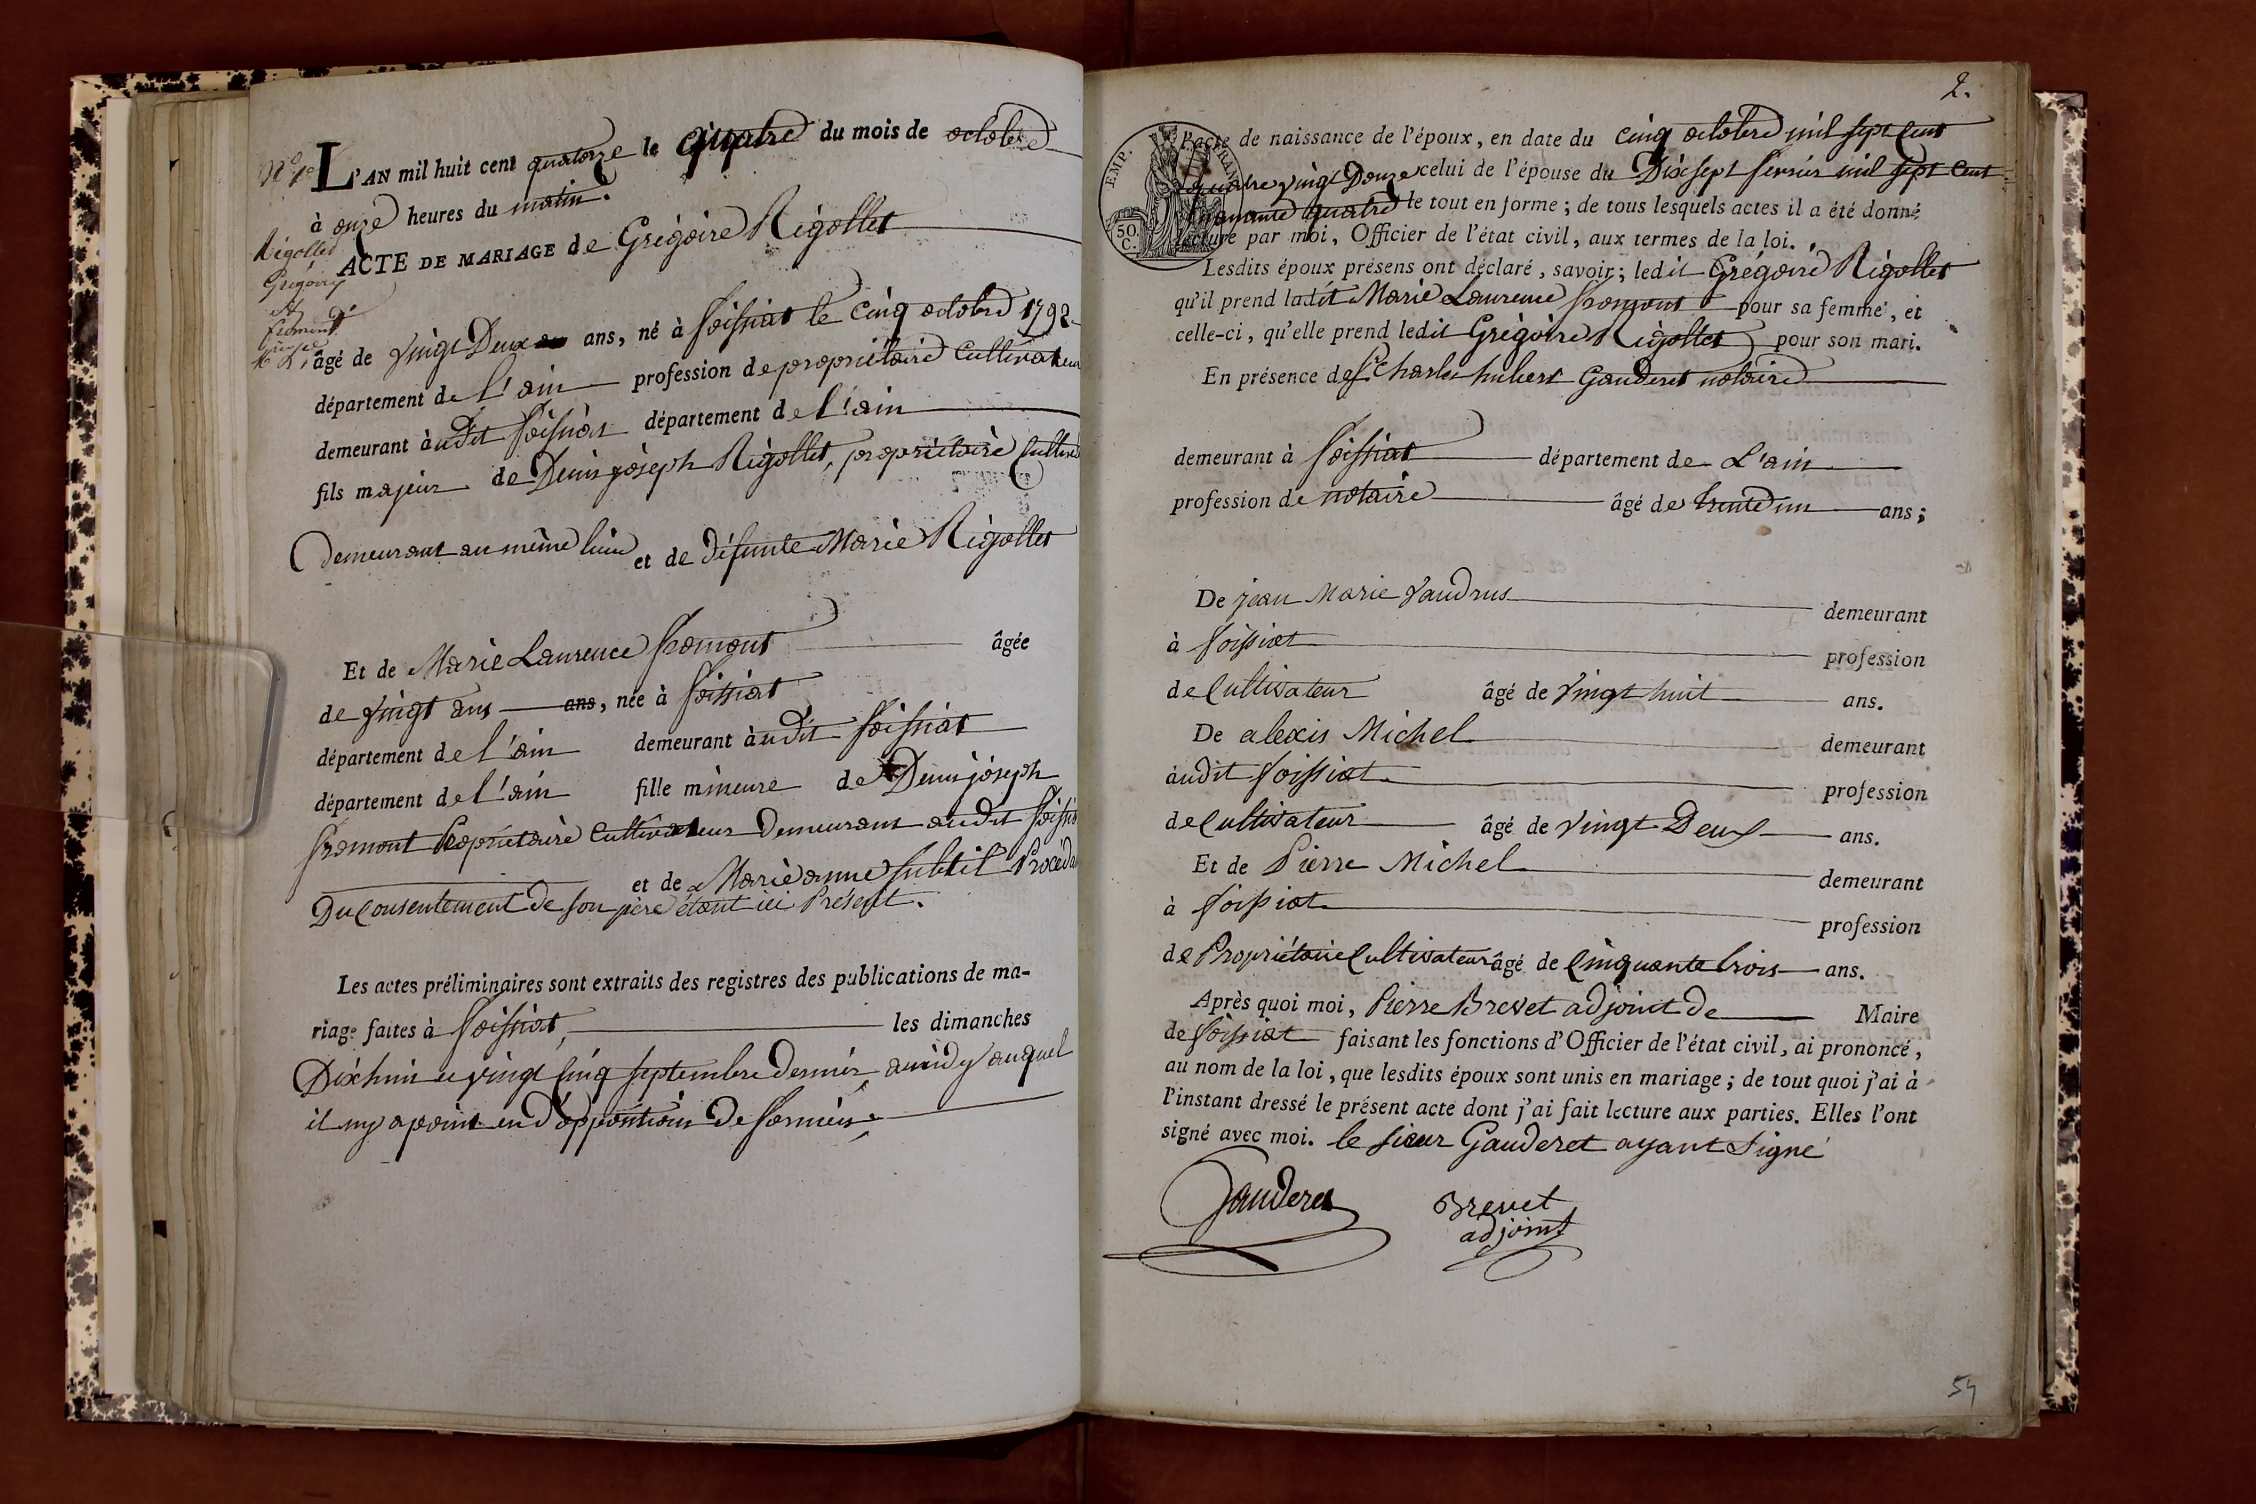 N° 1er
L'AN mil huit cent quatorze le quatre du mois de octobre
à onze heures du matin.
Rigollet
Grégoire
et
fromont
ACTE DE MARIAGE de Grégoire Rigollet
âgé de vingt Deux ans, né à foissiat le cinq octobre 1792
département de l'ain profession de propriétaire Cultivateur
demeurant àudit foissiat département de l'ain
fils majeur de Denis joseph Rigollet, propriétaire Cultiva
Demeurant au même lieu et de défunte Marie Rigollet
Et de Marie Laurence fromont âgée
de vingt ans ans, née à foissiat
département de l'ain demeurant àudit foissiat
département de l'ain fille mineure de Denis joseph
fromont Propriétaire Cultivateur Demeurant audit foissia
et de Marie anne subtil Procéda
Du Consentement de son père étant ici Présent.
Les actes préliminaires sont extraits des registres des publications de ma-
riage faites à foissiat, les dimanches
Dixhuit et vingt Cinq septembre dernier, à midy auquel
il ny a point eu d'opposition De formée.
2.
EMP.
50.
C.
l'acte de naissance de l'époux, en date du cinq octobre mil sept cent
quatre vingt Douze celui de l'épouse du Dixsept fevrier mil sept Cent
quatre le tout en forme; de tous lesquels actes il a été donné
lecture par moi, Officier de l'état civil, aux termes de la loi.
Lesdits époux présens ont déclaré, savoir; ledit Grégoire Rigollet
qu'il prend ladit Marie Laurence fromont pour sa femme, et
celle-ci, qu'elle prend ledit Grégoire Rigollet pour son mari.
En présence de Sr Charles hubert Gauderet notaire
demeurant à foissiat département de L'ain
profession de notaire âgé de trente un ans;
De jean Marie Vaudrus demeurant
à foissiat profession
de Cultivateur âgé de vingt huit ans.
De alexis Michel demeurant
àudit foissiat profession
de Cultivateur âgé de vingt Deux ans.
Et de Pierre Michel demeurant
à foissiat profession
de Propriétaire Cultivateur âgé de Cinquante trois ans.
Après quoi moi, Pierre Brevet adjoint de Maire
de foissiat faisant les fonctions d'Officier de l'état civil, ai prononcé,
au nom de la loi, que lesdits époux sont unis en mariage; de tout quoi j'ai à
l'instant dressé le présent acte dont j'ai fait lecture aux parties. Elles l'ont
signé avec moi. le sieur Gauderet ayant signé
Gauderet
Brevet
adjoint
54